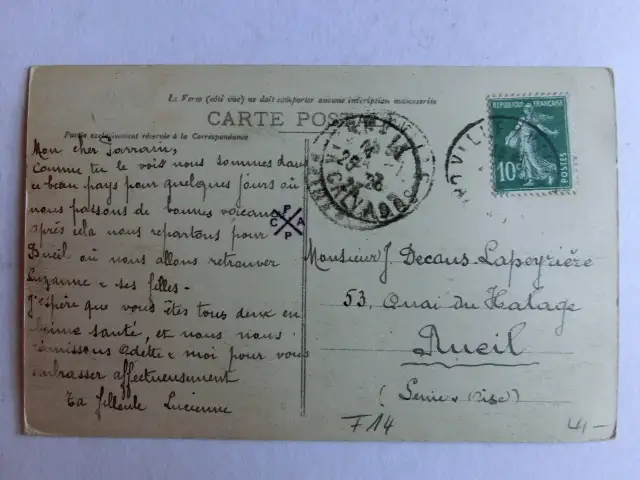 Le Verso (côté vue) ne doit comporter aucune inscription manuscrite
CARTE POSTALE
Partie exclusivement réservée à la Correspondance
Mon cher Parrain,
Comme tu le vois nous sommes dans
ce beau pays pour quelques jours où
nous passons de bonnes vacances
après cela nous repartons pour
Rueil où nous allons retrouver
Suzanne & ses filles-
J'espère que vous êtes tous deux en
bonne santé, et nous nous
réunissons Odette & moi pour vous
embrasser affectueusement
Ta filleule Lucienne
C P A P
REPUBLIQUE FRANÇAISE
10c
POSTES
CALVADOS
Monsieur J. Decaus-Lapeyrière
53, Quai du Halage
Rueil
(Seine & Oise)
F14